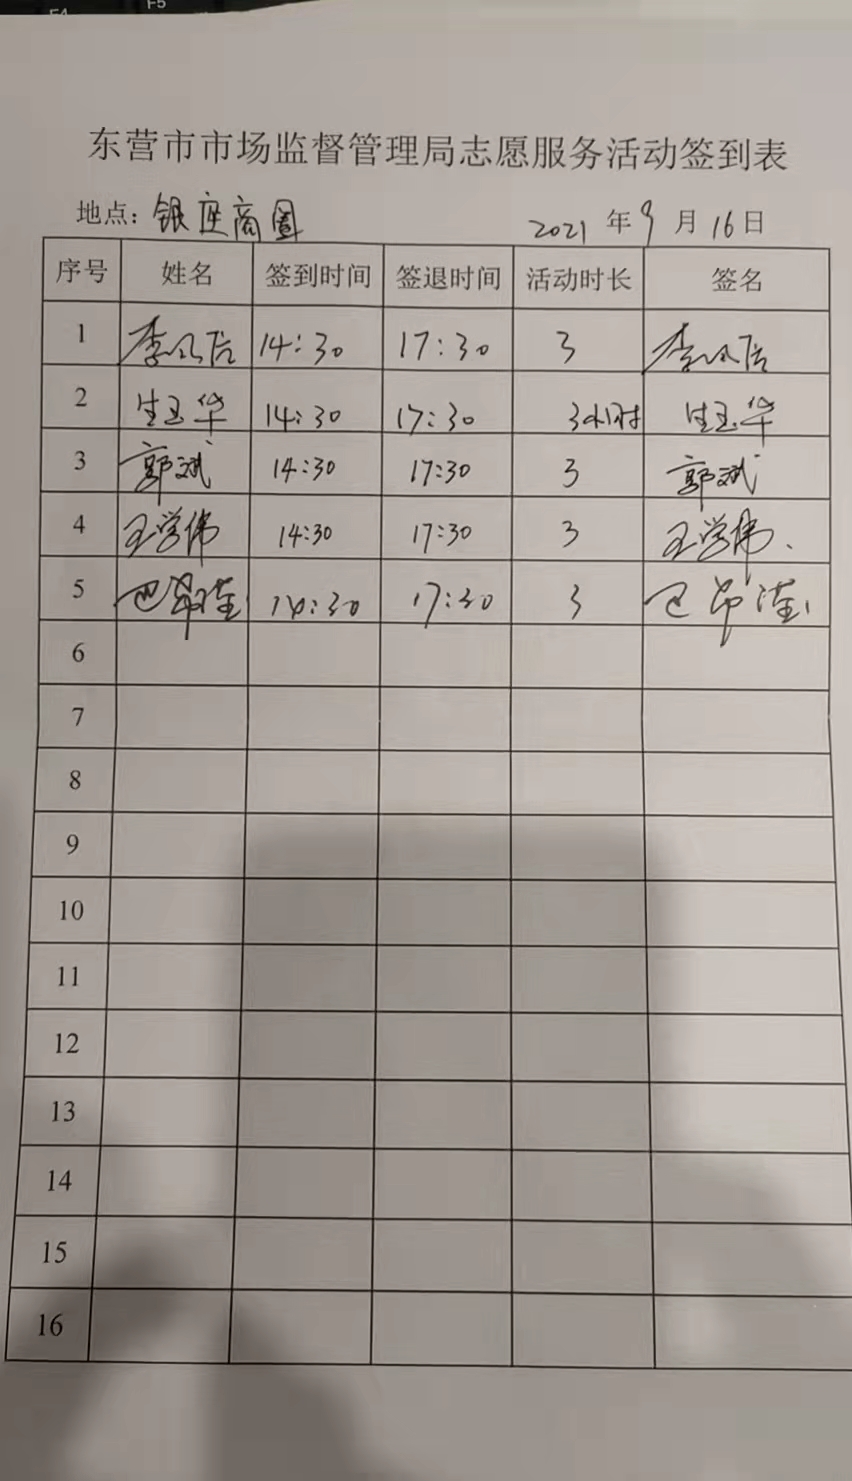 F4 F5
东营市市场监督管理局志愿服务活动签到表
地点: 银座商圈 2021 年 9 月 16 日
序号 姓名 签到时间 签退时间 活动时长 签名
1 李 14:30 17:30 3 李
2 生玉华 14:30 17:30 3小时 生玉华
3 郭斌 14:30 17:30 3 郭斌
4 王学伟 14:30 17:30 3 王学伟
5 巴 14:30 17:30 3 巴
6
7
8
9
10
11
12
13
14
15
16